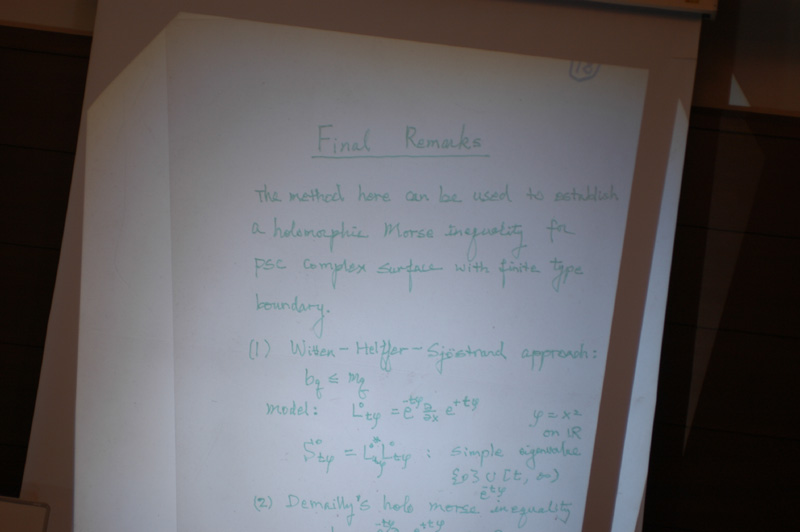 18
Final Remarks
The method here can be used to establish
a holomorphic Morse inequality for
psc complex surface with finite type
boundary.
(1) Witten-Helffer-Sjöstrand approach:
b_q ≤ m_q
model: L°_tφ = e^-tφ ∂/∂x e^+tφ φ = x²
on ℝ
= L°*_tφ L°_tφ : simple eigenvalue
{0} ∪ [t, ∞)
e^-tφ
(2) Demailly's holo morse inequality